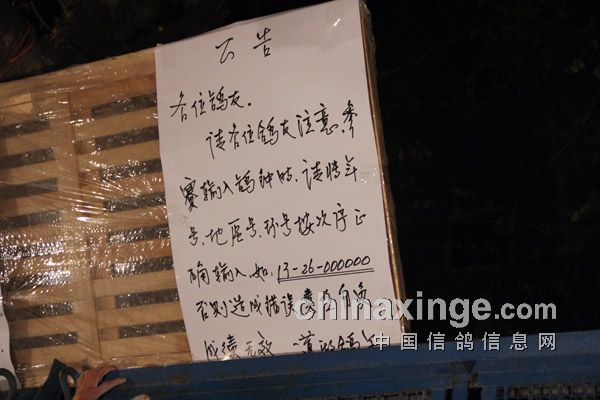 公告
各位鸽友.
请各位鸽友注意,参
赛输入鸽钟时,请将年
号、地区号、环号按次序正
确输入,如:13-26-000000
否则造成错误责任自负
成绩无效
chinaxinge.com
中国信鸽信息网